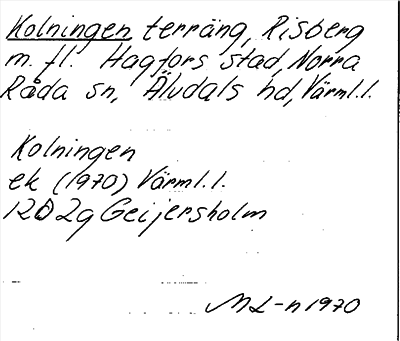 Kolningen terräng, Risberg
m. fl. Hagfors stad, Norra
Råda sn, Älvdals hd, Värml. l.
Kolningen
ek (1970) Värml. l.
12D 2g Geijersholm
ML-n 1970